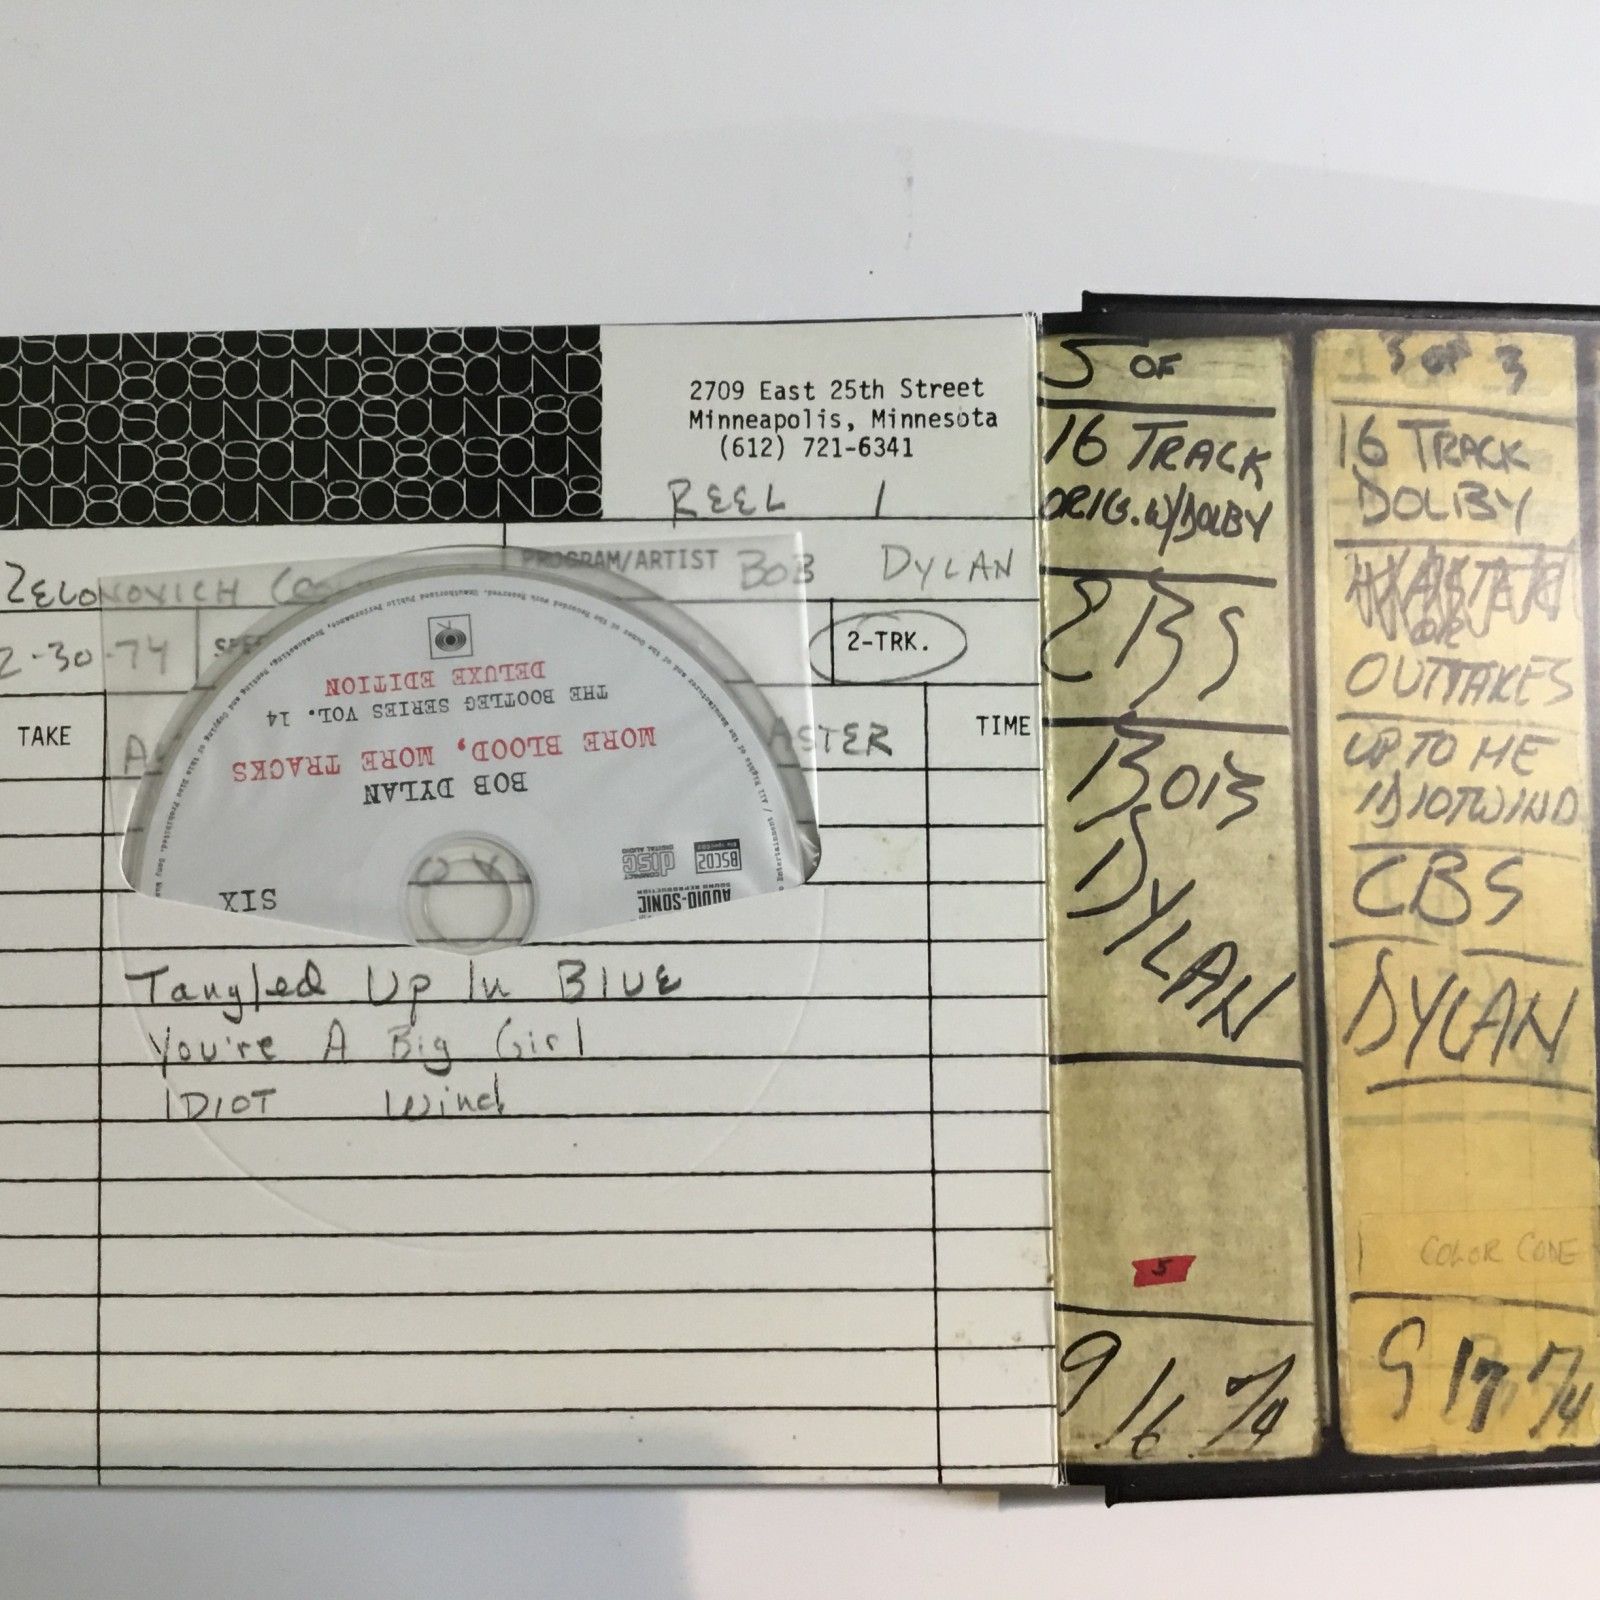 SOUND80SOUND80SOUND80SOUND
2709 East 25th Street
Minneapolis, Minnesota
(612) 721-6341
REEL 1
ZELONOVICH
PROGRAM/ARTIST BOB DYLAN
2-30-74
2-TRK.
TAKE
ASTER
TIME
BOB DYLAN
MORE BLOOD, MORE TRACKS
THE BOOTLEG SERIES VOL. 14
DELUXE EDITION
SIX
COMPACT
disc
DIGITAL AUDIO
BSCD2
AUDIO-SONIC
SOUND REPRODUCTION
Tangled Up In Blue
You're A Big Girl
IDIOT Wind
5 OF
16 TRACK
ORIG. W/DOLBY
CBS
BOB
DYLAN
5
9 16 74
3 OF 3
16 TRACK
DOLBY
OR
OUTTAKES
UP TO ME
IDIOT WIND
CBS
DYLAN
COLOR CODE
9 17 74